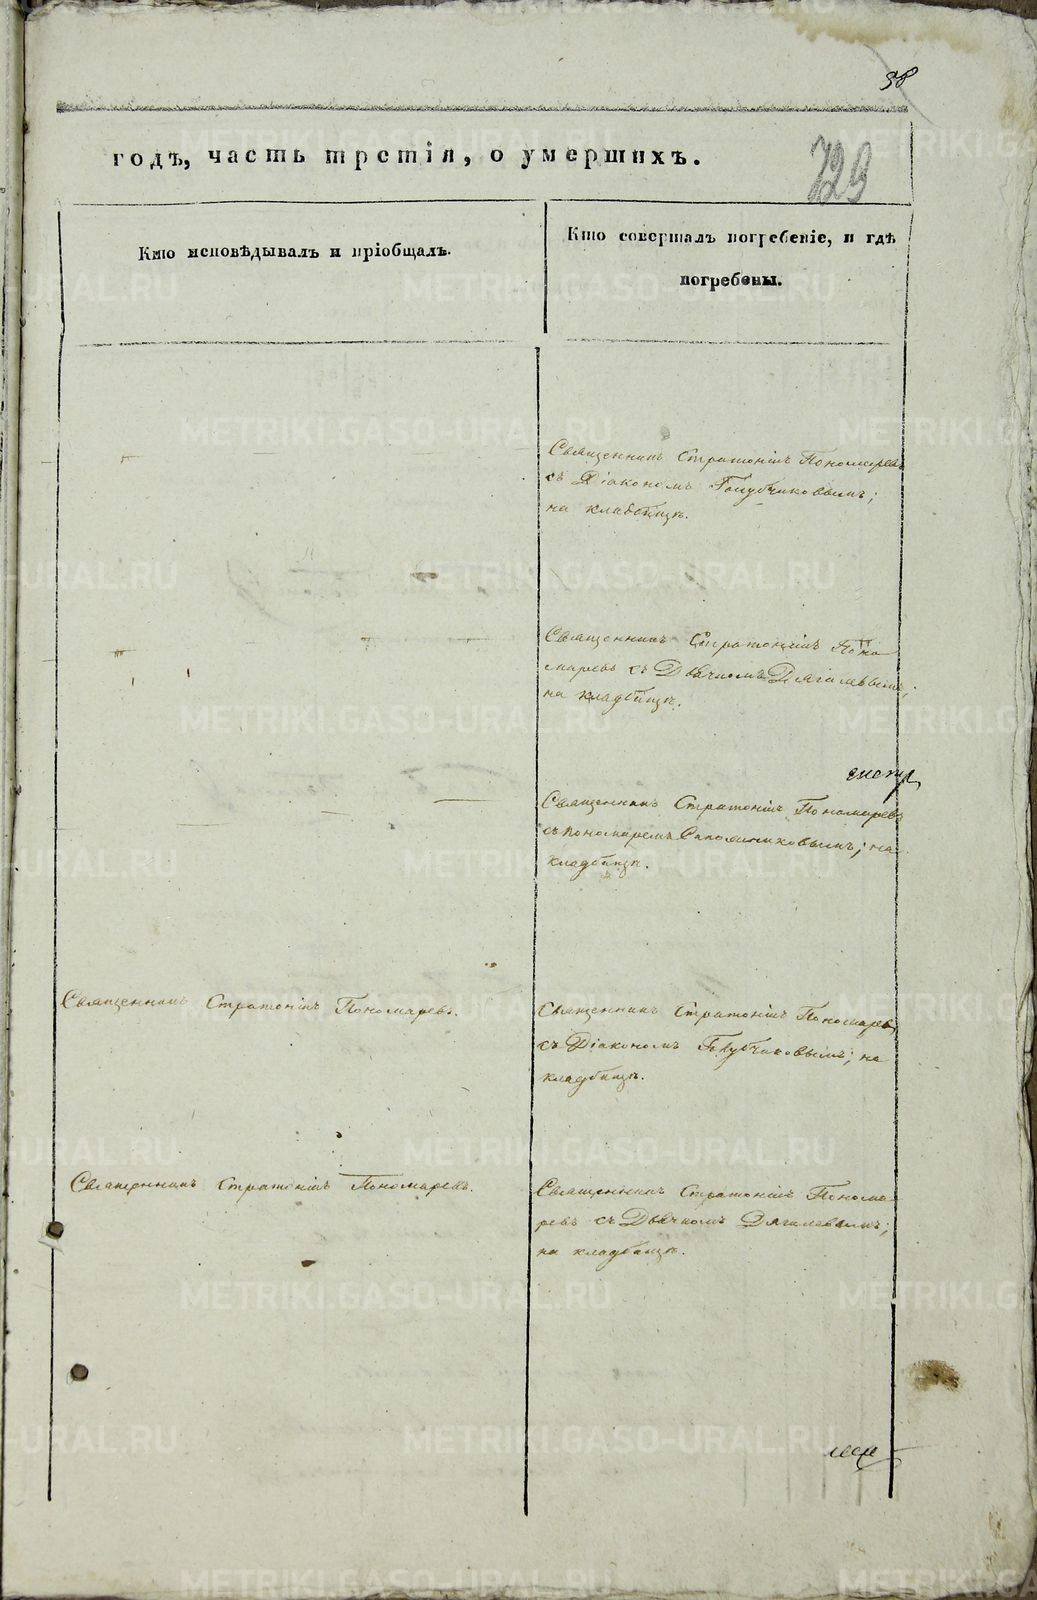 38
729
годъ, часть третія, о умершихъ.
Кто исповѣдывалъ и пріобщалъ.
Кто совершалъ погребеніе, и гдѣ
погребены.
Священникъ Стратоникъ Пономаревъ
съ Діакономъ Голубчиковымъ;
на кладбищѣ.
Священникъ Стратоникъ Поно
маревъ съ Дьячкомъ Дягилевымъ;
на кладбищѣ.
Священникъ Стратоникъ Пономаревъ
съ пономаремъ Сапожниковымъ; на
кладбищѣ.
Священникъ Стратоникъ Пономаревъ.
Священникъ Стратоникъ Пономаревъ
съ Діакономъ Голубчиковымъ; на
кладбищѣ.
Священникъ Стратоникъ Пономаревъ.
Священникъ Стратоникъ Понома
ревъ съ Дьячкомъ Дягилевымъ;
на кладбищѣ.
METRIKI.GASO-URAL.RU